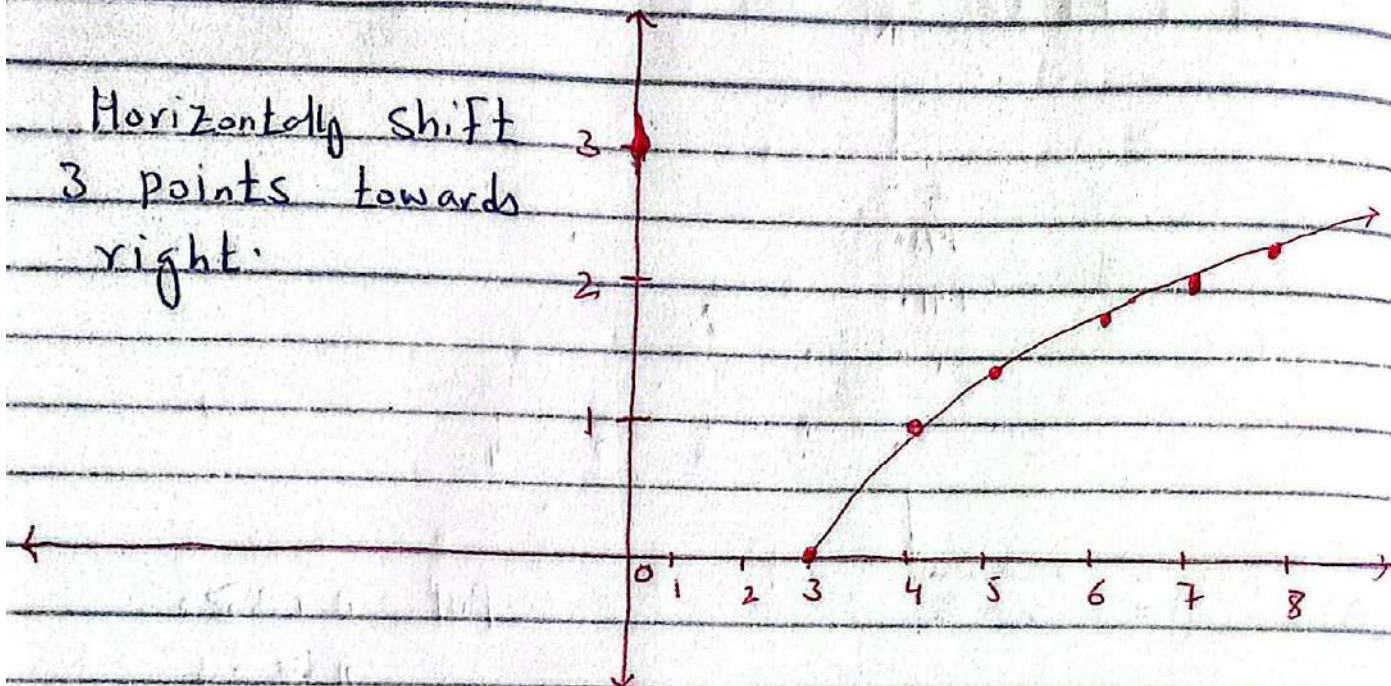 Horizontally shift
3 points towards
right.
3
2
1
0 1 2 3 4 5 6 7 8